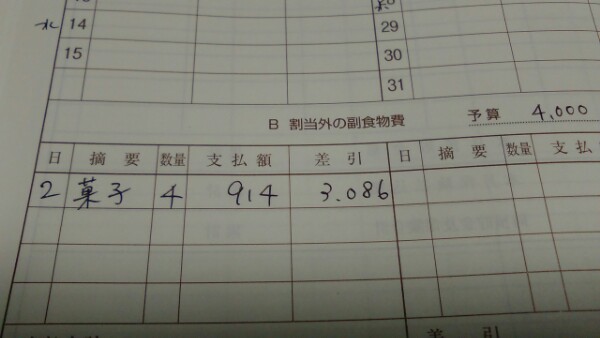 水 14 29
15 30
31
B 割当外の副食物費 予算 4,000
日 摘要 数量 支払額 差引 日 摘要 数量 支払
2 菓子 4 914 3.086
差引